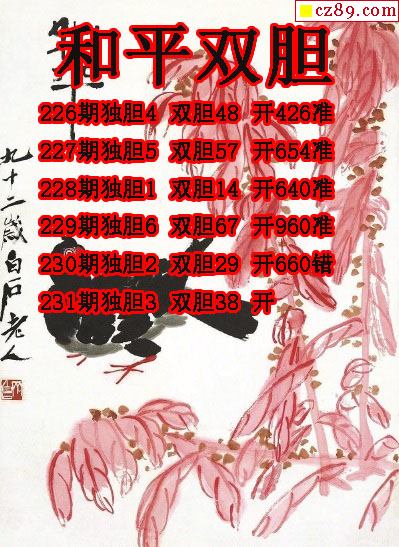 cz89.com
和平双胆
226期独胆4 双胆48 开426准
227期独胆5 双胆57 开654准
228期独胆1 双胆14 开640准
229期独胆6 双胆67 开960准
230期独胆2 双胆29 开660错
231期独胆3 双胆38 开
九十二岁白石老人